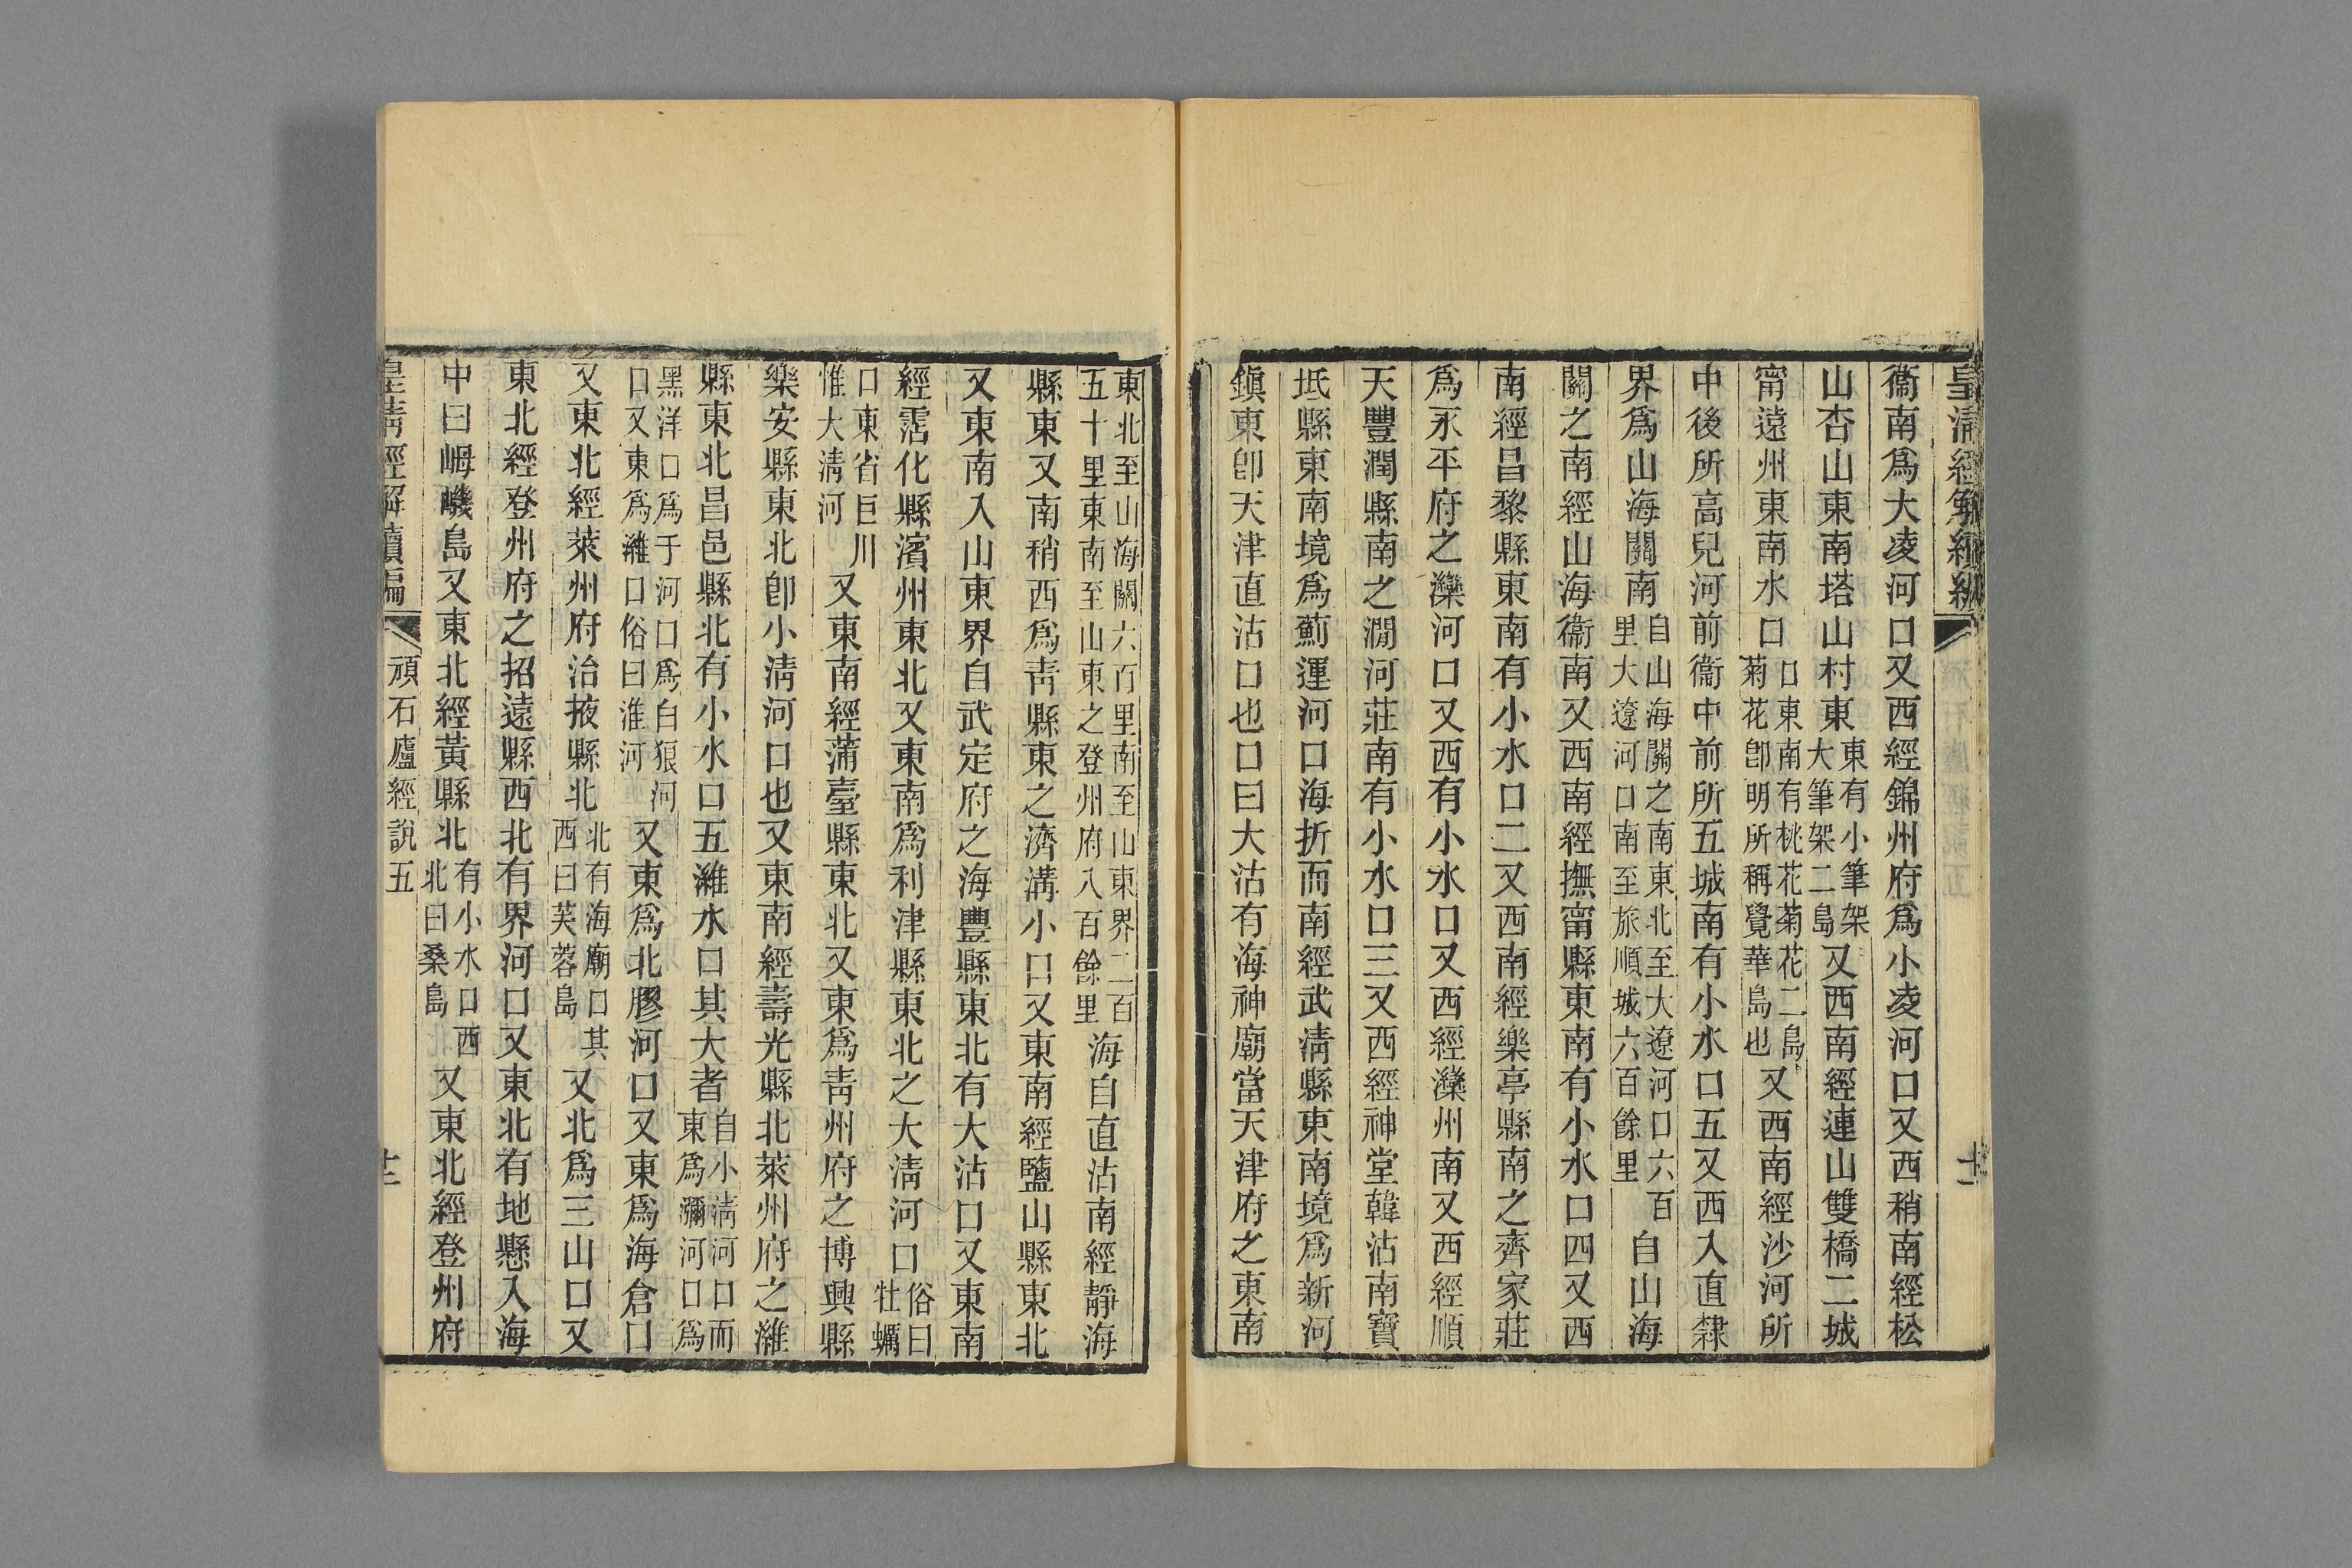 皇清經解續編
衞南爲大凌河口又西經錦州府爲小凌河口又西稍南經松
山杏山東南塔山村東東有小筆架大筆架二島又西南經連山雙橋二城
甯遠州東南水口口東南有桃花菊花二島菊花卽明所稱覺華島也又西南經沙河所
中後所高兒河前衞中前所五城南有小水口五又西入直隸
界爲山海關南自山海關之南東北至大遼河口六百里大遼河口南至旅順城六百餘里自山海
關之南經山海衞南又西南經撫甯縣東南有小水口四又西
南經昌黎縣東南有小水口二又西南經樂亭縣南之齊家莊
爲永平府之灤河口又西有小水口又西經灤州南又西經順
天豐潤縣南之澗河莊南有小水口三又西經神堂韓沽南寶
坻縣東南境爲薊運河口海折而南經武淸縣東南境爲新河
鎭東卽天津直沽口也口曰大沽有海神廟當天津府之東南
東北至山海關六百里南至山東界二百五十里東南至山東之登州府八百餘里海自直沽南經靜海
縣東又南稍西爲靑縣東之濟溝小口又東南經鹽山縣東北
又東南入山東界自武定府之海豐縣東北有大沽口又東南
經霑化縣濱州東北又東南爲利津縣東北之大淸河口俗曰牡蠣
口東省巨川惟大淸河又東南經蒲臺縣東北又東爲靑州府之博興縣
樂安縣東北卽小淸河口也又東南經壽光縣北萊州府之濰
縣東北昌邑縣北有小水口五濰水口其大者自小淸河口而東爲瀰河口爲
黑洋口爲于河口爲白狼河口又東爲濰口俗曰淮河又東爲北膠河口又東爲海倉口
又東北經萊州府治掖縣北北有海廟口其西曰芙蓉島又北爲三山口又
東北經登州府之招遠縣西北有界河口又東北有地懸入海
中曰㟂嶬島又東北經黃縣北有小水口西北曰桑島又東北經登州府
皇淸經解續編
頑石廬經說五